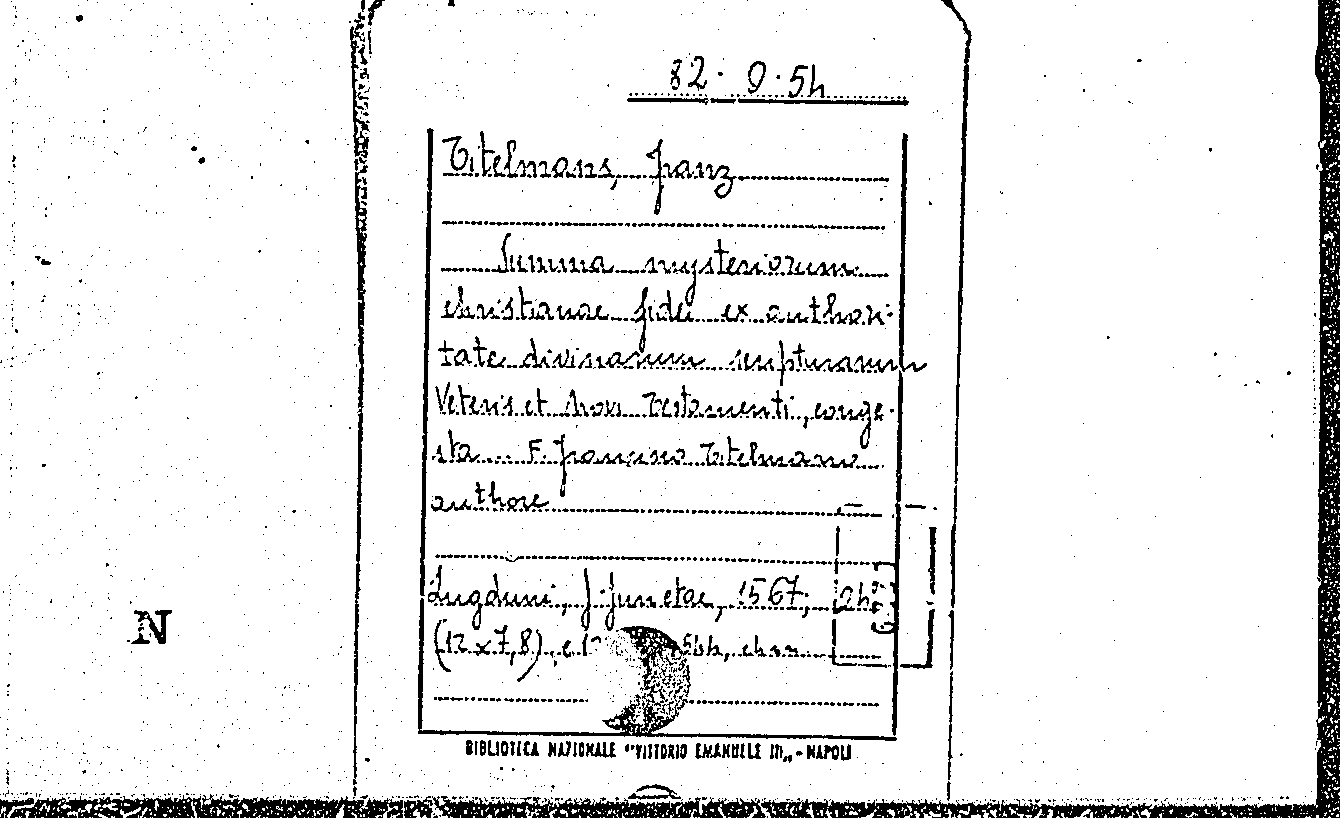 82. 9. 5h
Titelmans, Franz
Summa mysteriorum
christianae fidei ex authori-
tate divinarum scripturarum
Veteris et Novi Testamenti, conge-
sta... F. Francisco Titelmano
authore
Lugduni, J. Junctae, 1567;
(12 x 7,8), c.
N
BIBLIOTECA NAZIONALE "VITTORIO EMANUELE III„ - NAPOLI